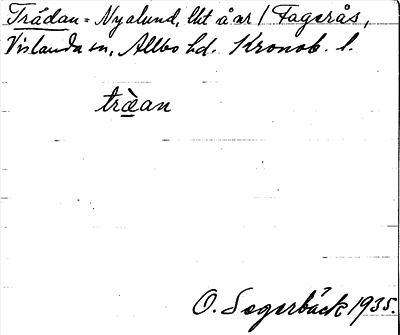 Trädan = Nyalund, lht å ar / Fagerås,
Vislanda sn, Allbo hd. Kronob. l.
träan
O. Segerbäck 1935.